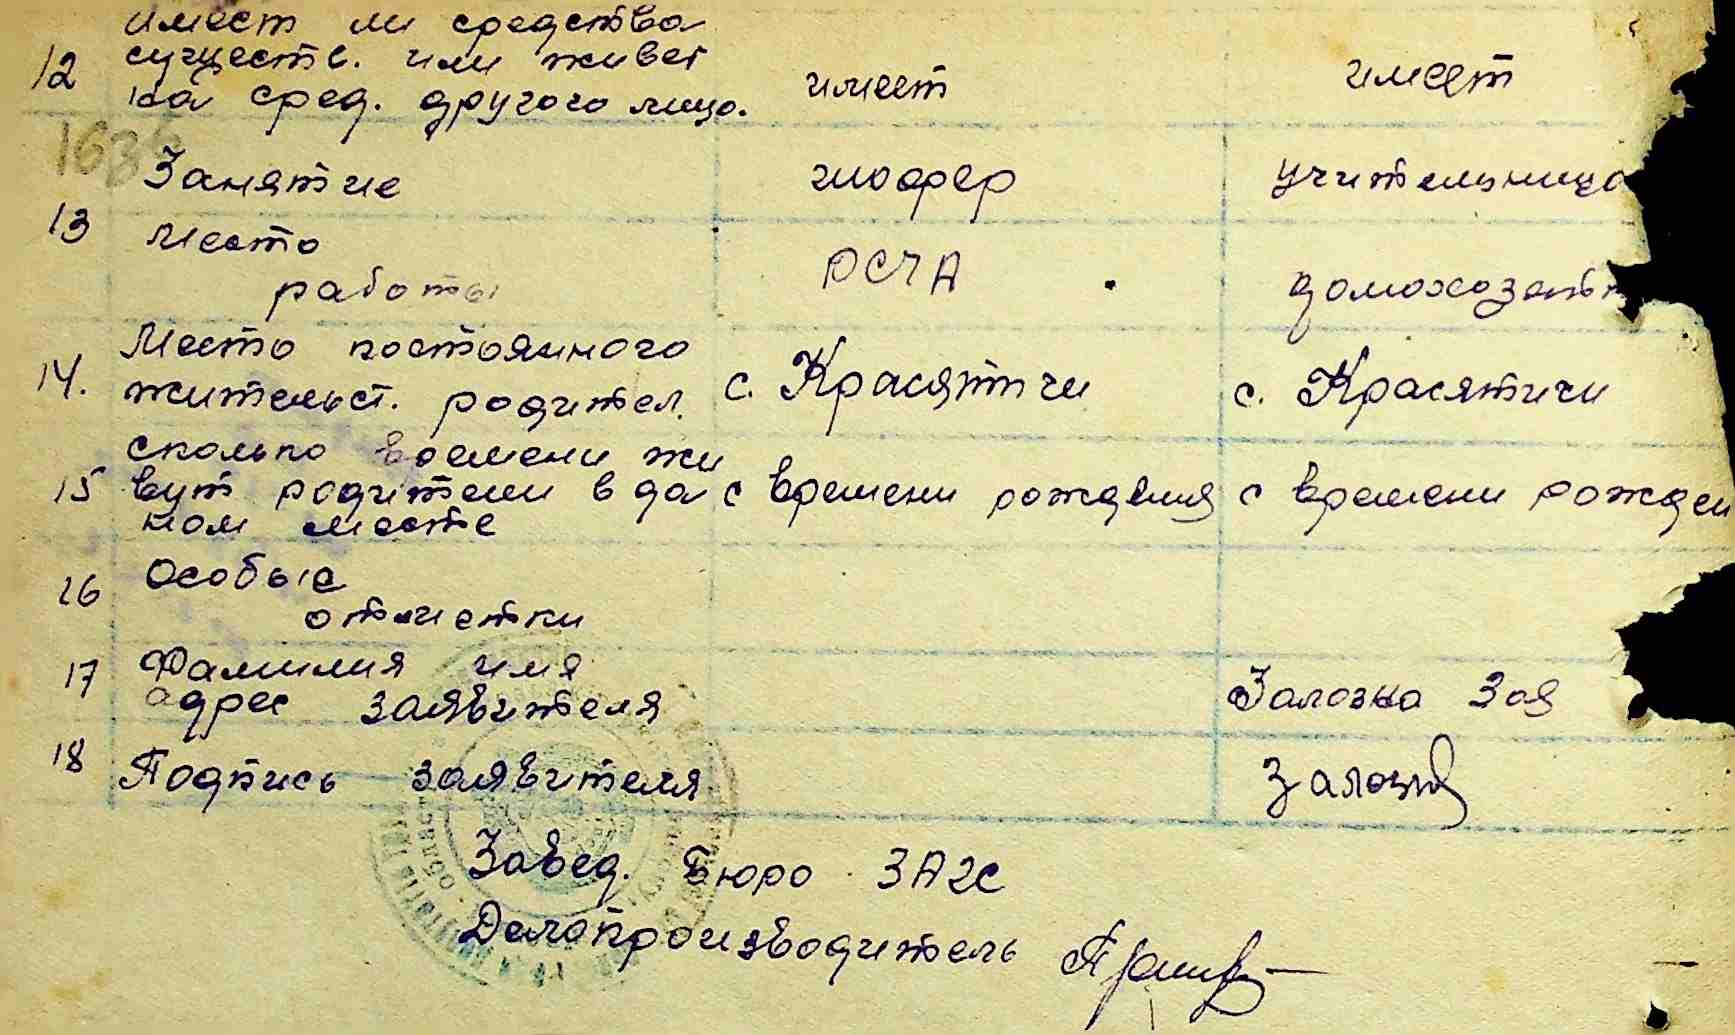 имеет ли средства
12 существ. или живет имеет имеет
на сред. другого лица.
163
Занятие шофер учительница
13 Место
работы РСЧА домохозяйк
Место постоянного
14. жительст. родител. с. Красятичи с. Красятичи
сколько времени жи
15 вут родители в да с времени рождения с времени рожден
ном месте
16 Особые
отметки
17 Фамилия имя
адрес заявителя Залозна Зоя
18 Подпись заявителя
Завед. Бюро ЗАГС
Делопроизводитель